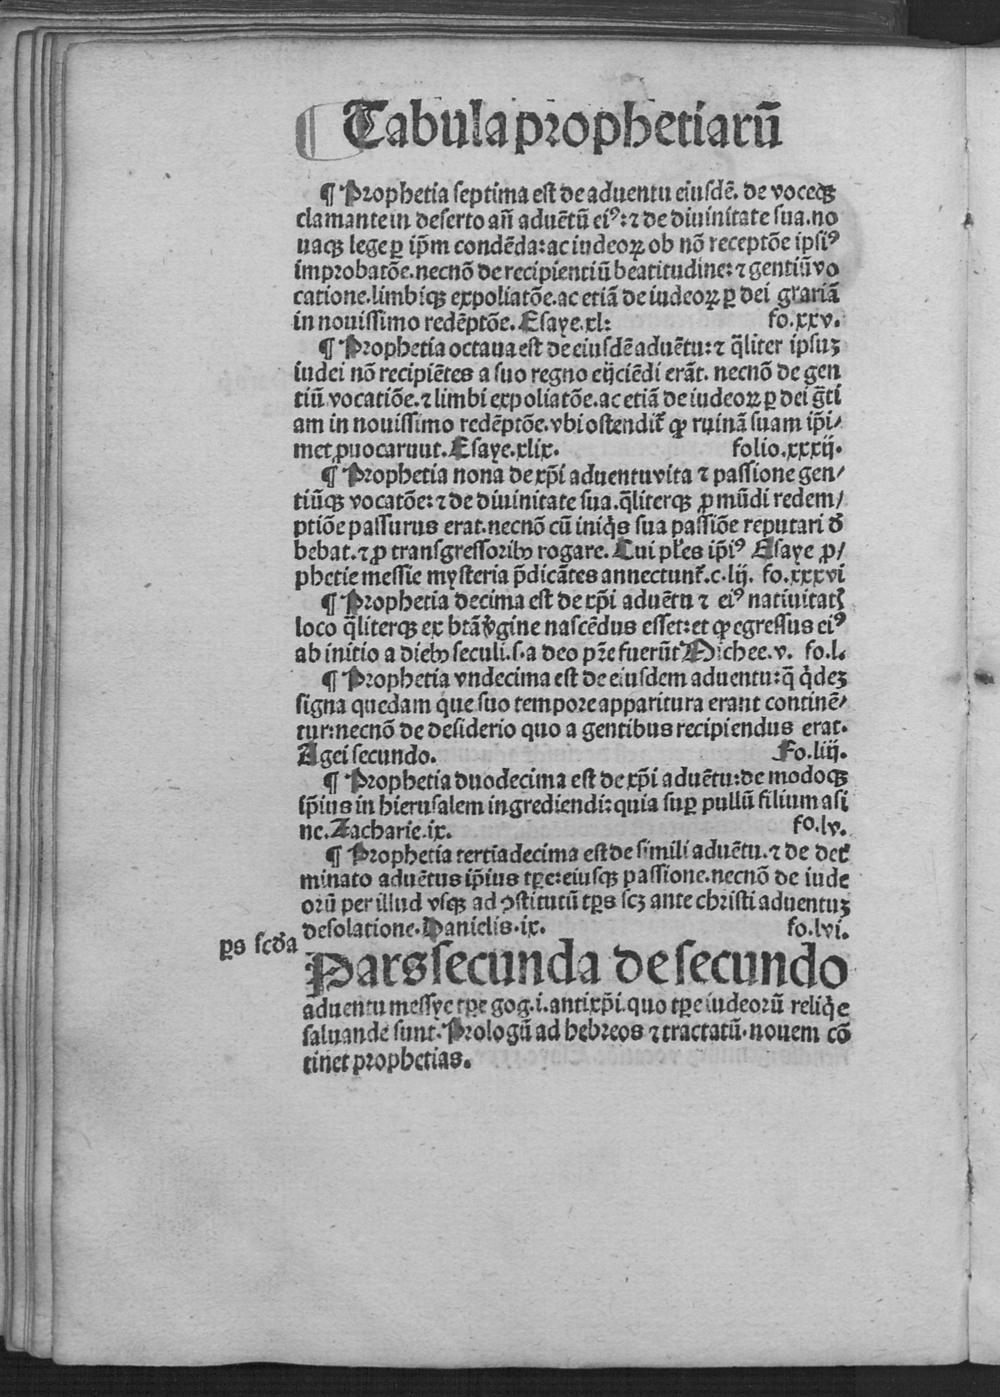 ¶ Tabula prophetiarũ
¶ Prophetia septima est de aduentu eiusdẽ. de voceqꝫ
clamante in deserto añ aduẽtũ eiꝰ: ⁊ de diuinitate sua. no
uaqꝫ lege ꝑ ip̃m condẽda: ac iudeoꝝ ob nõ receptõe ipsiꝰ
improbatõe. necnõ de recipientiũ beatitudine: ⁊ gentiũ vo
catione. limbiqꝫ expoliatõe. ac etiã de iudeoꝝ ꝑ dei grariã
in nouissimo redẽptõe. Esaye. xl: fo. xxv.
¶ Prophetia octaua est de eiusdẽ aduẽtu: ⁊ q̃liter ipsuꝫ
iudei nõ recipiẽtes a suo regno eijciẽdi erãt. necnõ de gen
tiũ vocatiõe. ⁊ limbi expoliatõe. ac etiã de iudeoꝝ ꝑ dei gr̃ti
am in nouissimo redẽptõe. vbi ostendit̃ ꝙ ruinã suam ip̃i/
met ꝓuocarunt. Esaye. xlix. folio. xxxij.
¶ Prophetia nona de xp̃i aduentu vita ⁊ passione gen/
tiũqꝫ vocatõe: ⁊ de diuinitate sua. q̃literqꝫ ꝓ mũdi redem/
ptiõe passurus erat. necnõ cũ iniq̃s sua passiõe reputari d̃
bebat. ⁊ ꝓ transgressoribꝰ rogare. Cui pl̃es ip̃iꝰ Esaye ꝓ/
phetie messie mysteria p̃dicãtes annectunt̃. c. lij. fo. xxxvi
¶ Prophetia decima est de xp̃i aduẽtu ⁊ eiꝰ natiuitatꝭ
loco q̃literqꝫ ex btã v̓gine nascẽdus esset: et ꝙ egressus eiꝰ
ab initio a diebꝰ seculi. s. a deo pr̃e fuerũt Michee. v. fo. l.
¶ Prophetia vndecima est de eiusdem aduentu: q̃ q̃deꝫ
signa quedam que suo tempore apparitura erant continẽ/
tur: necnõ de desiderio quo a gentibus recipiendus erat.
Agei secundo. Fo. liij.
¶ Prophetia duodecima est de xp̃i aduẽtu: de modoqꝫ
ip̃ius in hierusalem ingrediendi: quia suꝑ pullũ filium asi
ne. Zacharie. ix. fo. lv.
¶ Prophetia tertiadecima est de simili aduẽtu. ⁊ de det̃
minato aduẽtus ip̃ius tp̃e: eiusqꝫ passione. necnõ de iude
orũ per illud vsqꝫ ad ꝯstitutũ tp̃s scꝫ ante christi aduentuꝫ
desolatione. Danielis. ix. fo. lvi.
ꝑs scd̃a
Pars secunda de secundo
aduentu messye tp̃e gog. i. antixp̃i. quo tp̃e iudeorũ reliq̃e
saluande sunt. Prologũ ad hebreos ⁊ tractatũ. nouem cõ
tinet prophetias.